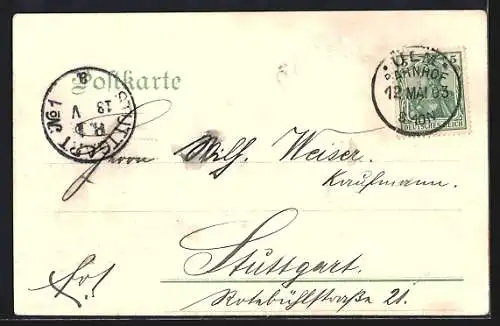 Postkarte
ULM
BAHNHOF
12 MAI 03
8-9 N
5
DEUTSCHES REICH
STUTTGART No 1
13
V
Herrn Wilh. Weiser.
Kaufmann.
Stuttgart.
Rotebühlstraße 21.